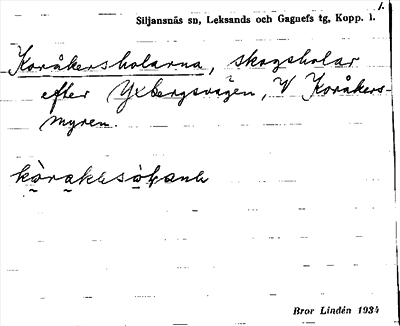 1.
Siljansnäs sn, Leksands och Gagnefs tg, Kopp. l.
Koråkersholarna, skogsholar
efter Yxbergsvägen, V Koråkers-
myren.
Bror Lindén 1934